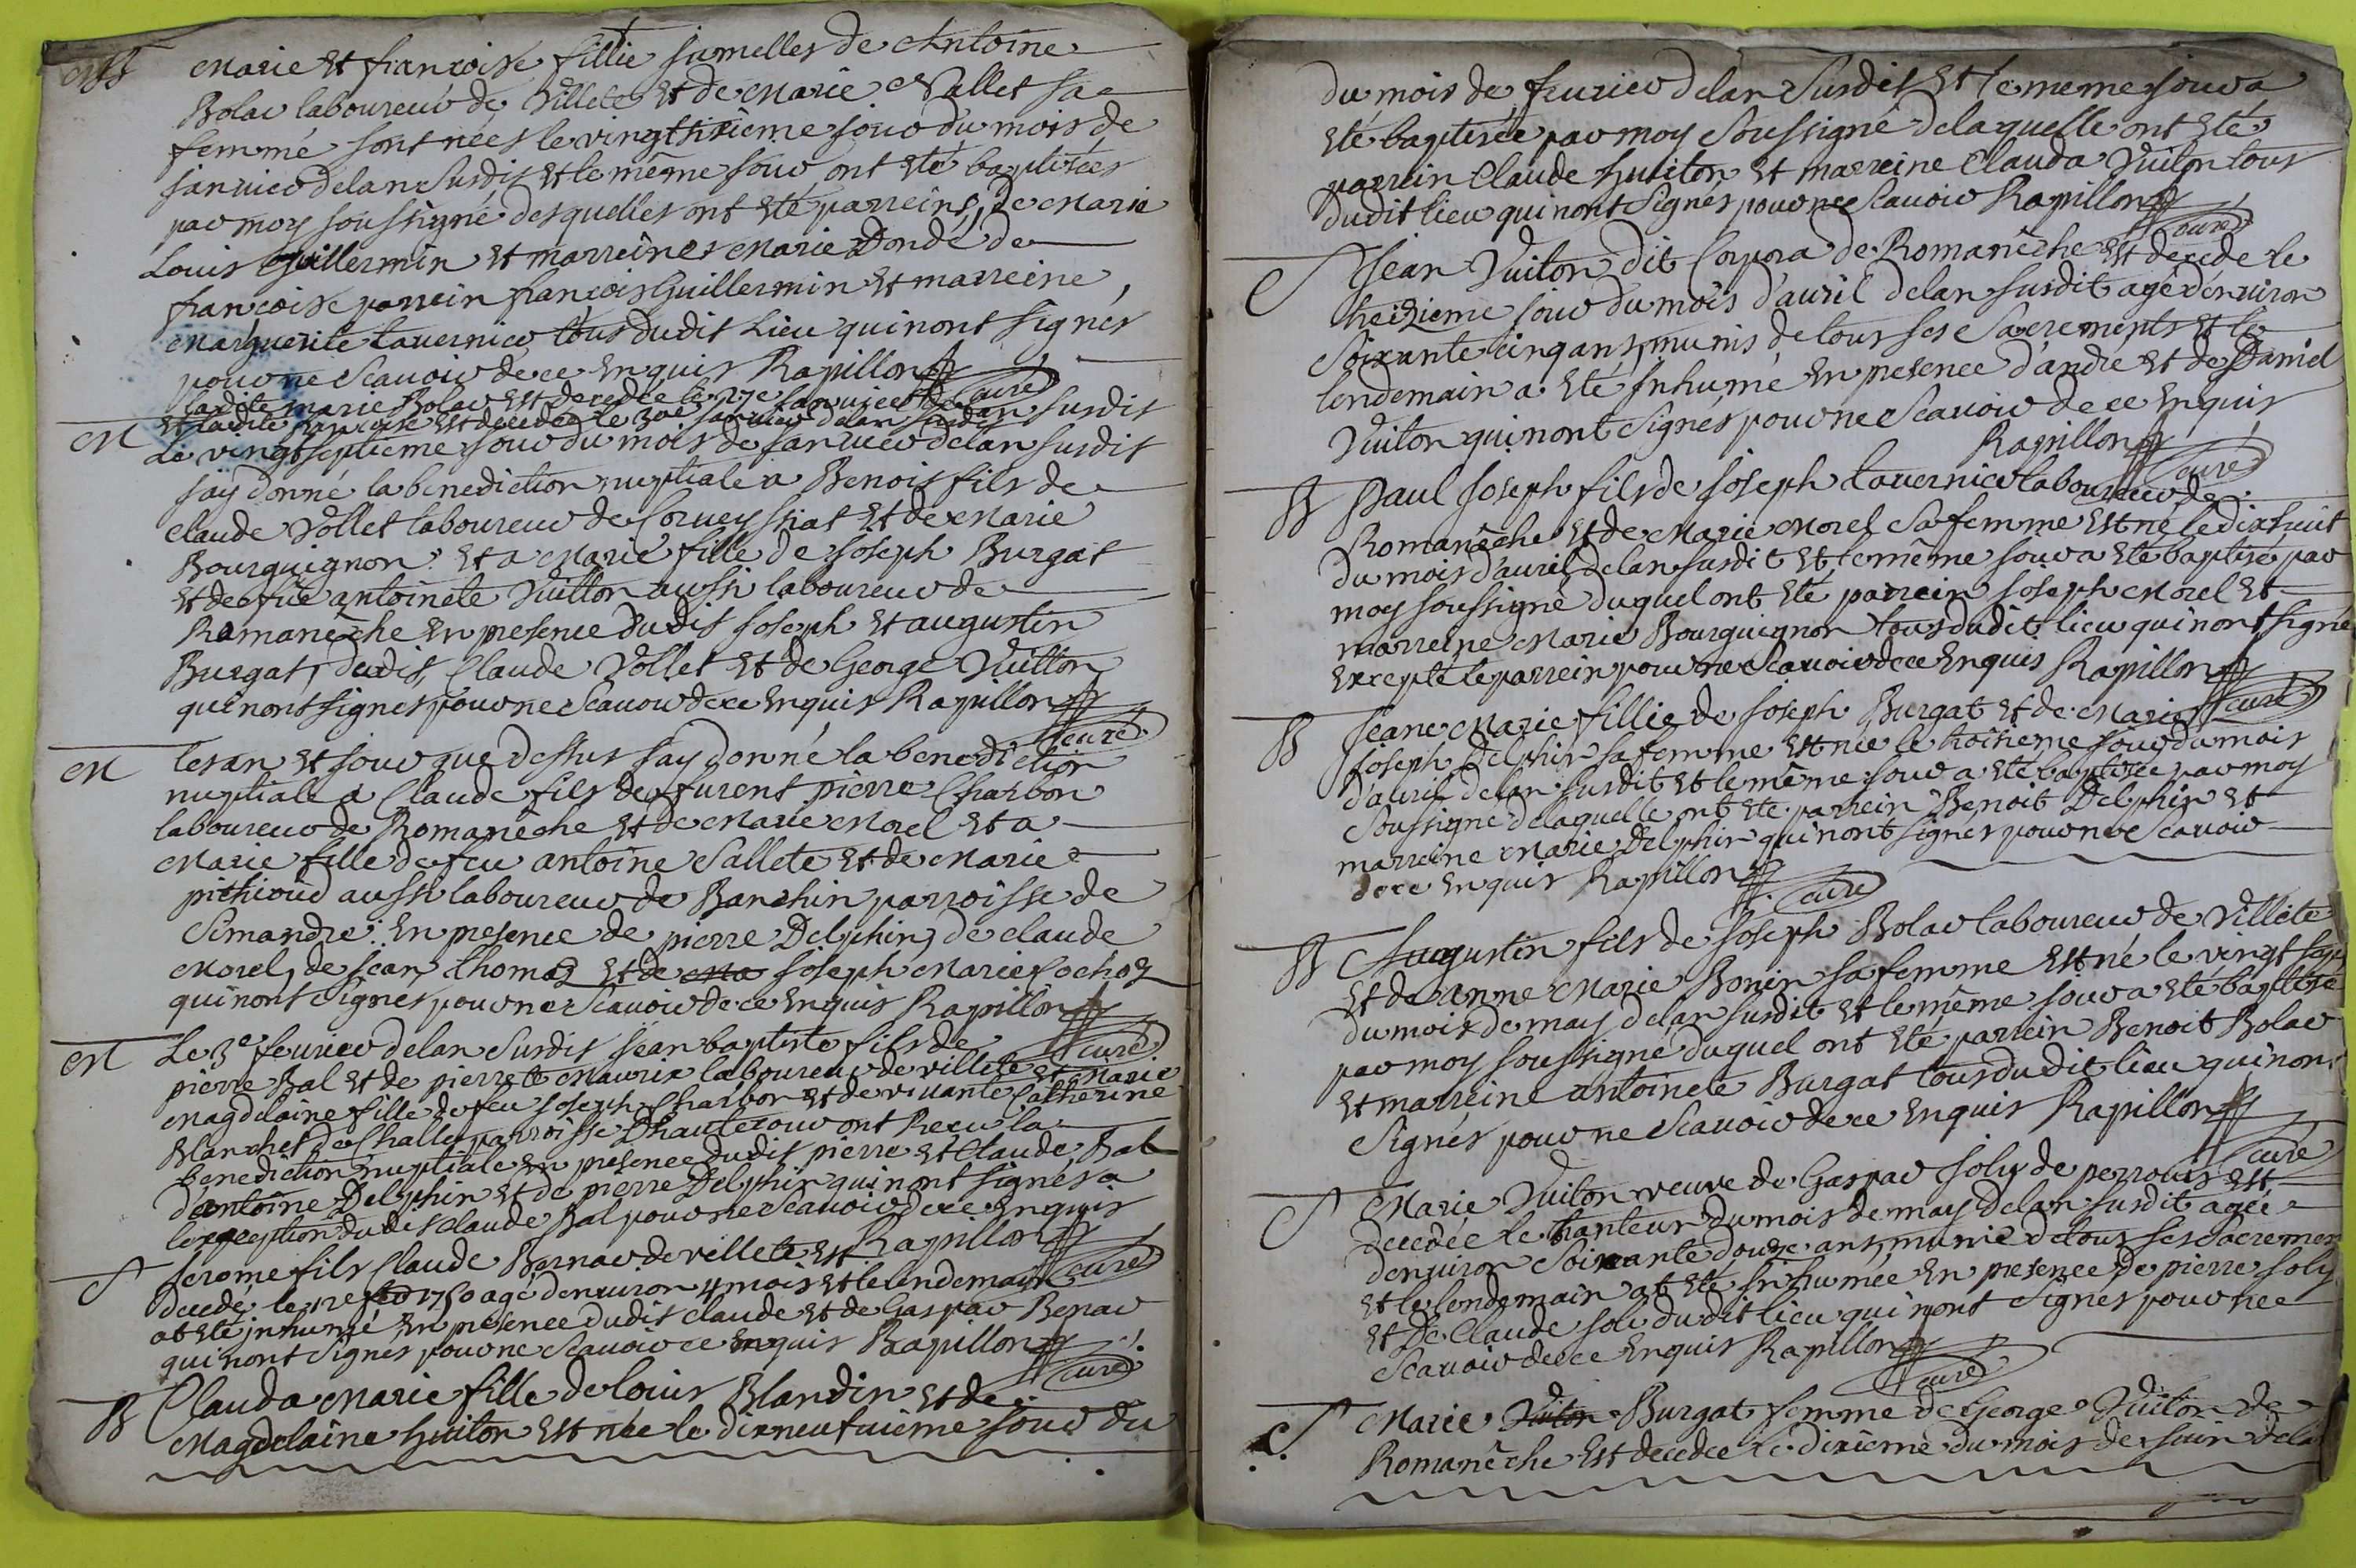 BB Marie et francoise fillie jumelles de Antoine
Bolar laboureur de Villete et de Marie Vallet sa
femme sont nées le vingtsixieme jour du mois de
janvier de lan susdit et le même jour ont eté baptisées
par moy soussigné desquelles ont eté parreins, de Marie
Louis Guillermin et marreines Marie Dondé de
francoise parrein francois Guillermin et marreine
Marguerite tavernier tous dudit Lieu qui nont signés
pour ne scavoir de ce enquis Rapillon curé
ladite marie Bolar est decedée le 27e janvier
et ladite francoise est decedée le 30e janvier de lan susdit
M Le vingtseptieme jour du mois de janvier de lan susdit
jay donné la benediction nuptiale a Benoit fils de
Claude Vollet laboureur de Corveyssiat et de Marie
Bourguignon et a Marie fille de joseph Burgat
et de fue antoinete Vuitton aussi laboureur de
Romanêche en presence dudit joseph et augustin
Burgat, dudit Claude Vollet et de George Vuitton
qui nont signes pour ne scavoir de ce enquis Rapillon curé
M les an et jour que dessus jay donné la benediction
nuptiale a Claude fils de furent pierre Charbon
laboureur de Romanêche et de Marie Morel et a
Marie fille de feu antoine Sallete et de Marie
pithioud aussi laboureur de Banchin parroisse de
Simandre en presence de pierre Delphin, de claude
Morel, de jean thomaz et de Ma joseph Marie Cochoz
qui nont signes pour ne scavoir de ce enquis Rapillon
M Le 3e fevrier de lan susdit jean baptiste fils de curé
pierre Bal et de pierrete Maurix laboureur de villete et Marie
Magdelaine fille de feu joseph Charbon et de vivante Catherine
Blanchet de Challes parroisse Dhautecour ont Recu la
benediction nuptiale en presence dudit pierre et Claude Bal
d'antoine Delphin et de pierre Delphin qui nont signés a
lexception dudit claude Bal pour ne scavoir de ce enquis
Rapillon curé
S jerome fils Claude Bernar de villete est
decedé le 12e 1750 agé denviron 4 mois et le lendemain
at eté jnhumé en presence dudit claude et de Gaspar Benar
qui nont signés pour ne scavoir ce enquis Rapillon curé
B Clauda Marie fille de louis Blandin et de
Magdelaine huiton est née le dixneufvieme jour du
du mois de fevrier de lan susdit et le meme jour a
eté baptisée par moy soussigné de laquelle ont eté
parrein Claude huiton et marreine Clauda Vuiton tous
dudit lieu qui nont signés pour ne scavoir Rapillon curé
S Jean Vuiton dit Corpora de Romanêche est decede le
treizieme jour du mois d'avril de lan susdit agé denviron
soixante cinq ans, munis de tous ses sacrements et le
lendemain a eté jnhumé en presence d'andré et de Daniel
Vuiton qui nont signés pour ne scavoir de ce enquis
Rapillon curé
B Paul Joseph fils de joseph tavernier laboureur de
Romanêche et de Marie Morel sa femme est né le dixhuit
du mois d'avril de lan susdit et le même jour a eté baptisé par
moy soussigné duquel ont eté parrein joseph Morel et
marreine Marie Bourguignon tous dudit lieu qui nont signé
excepté le parrein pour ne scavoir de ce enquis Rapillon curé
B Jeane Marie fillie de joseph Burgat et de Marie
joseph Delphin sa femme est née le troisieme jour du mois
d'avril de lan susdit et le même jour a eté baptisée par moy
soussigné de laquelle ont eté parrein Benoit Delphin et
marreine Marie Delphin qui nont signés pour ne scavoir
de ce enquis Rapillon curé
B Augustin fils de joseph Bolar laboureur de Villete
et de anne Marie Bonin sa femme est né le vingt sept
du mois de may de lan susdit et le même jour a eté baptisé
par moy soussigné duquel ont eté parrein Benoit Bolar
et marreine antoinete Burgat tous dudit lieu qui nont
signés pour ne scavoir de ce enquis Rapillon curé
S Marie Vuiton veuve de Gaspar joly de perrouis est
decedée le trenteun du mois de may de lan susdit agée
denviron soixante douze ans, munie de tous ses sacremens
et le lendemain at eté jnhumée en presence de pierre joly
et de Claude joli dudit lieu qui nont signés pour ne
scavoir de ce enquis Rapillon curé
S Marie Vuiton Burgat femme de George Vuiton de
Romanêche est decedée le dixieme du mois de juin de la